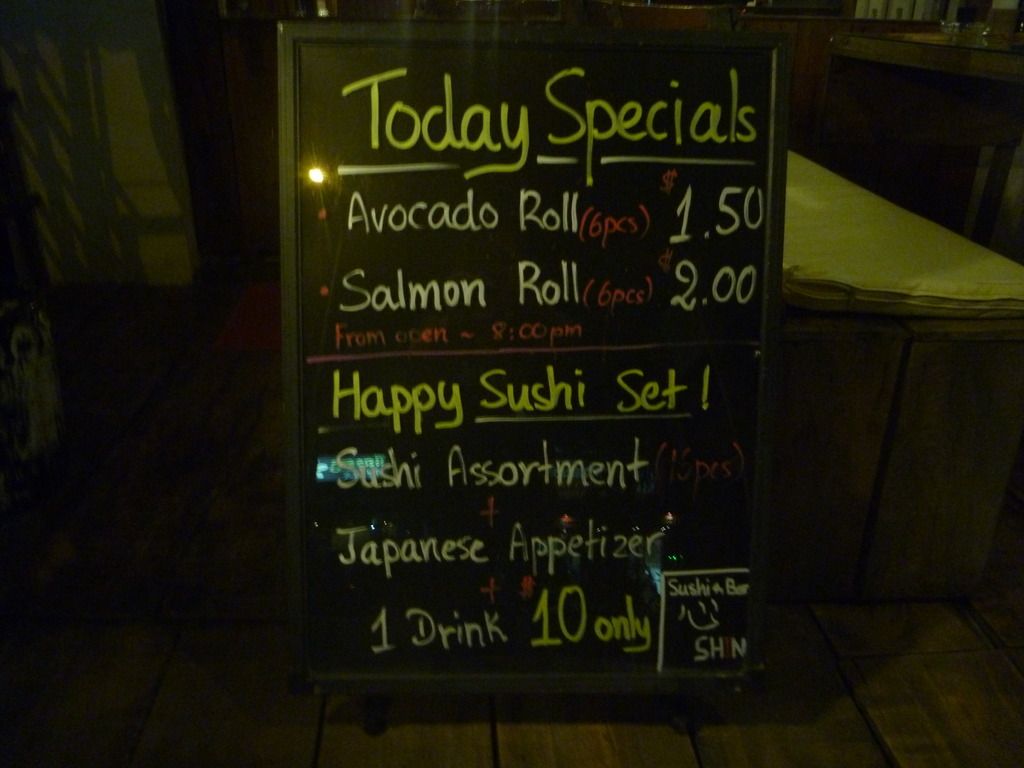 Today Specials
• Avocado Roll (6pcs) $1.50
• Salmon Roll (6pcs) $2.00
From open ~ 8:00pm
Happy Sushi Set!
Sushi Assortment (pcs)
+
Japanese Appetizer
+
1 Drink $10 only
Sushi & Bar
SHIN